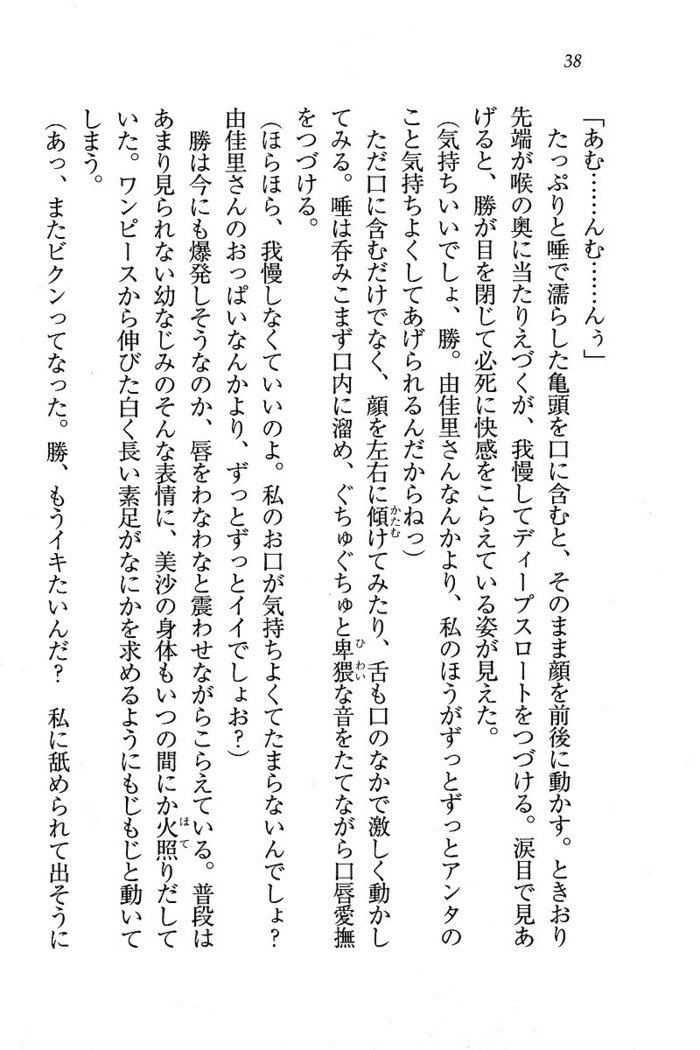 38
「あむ……んむ……んぅ」
たっぷりと唾で濡らした亀頭を口に含むと、そのまま顔を前後に動かす。ときおり
先端が喉の奥に当たりえづくが、我慢してディープスロートをつづける。涙目で見あ
げると、勝が目を閉じて必死に快感をこらえている姿が見えた。
(気持ちいいでしょ、勝。由佳里さんなんかより、私のほうがずっとずっとアンタの
こと気持ちよくしてあげられるんだからねっ)
ただ口に含むだけでなく、顔を左右に傾けてみたり、舌も口のなかで激しく動かし
てみる。唾は呑みこまず口内に溜め、ぐちゅぐちゅと卑猥な音をたてながら口唇愛撫
をつづける。
(ほらほら、我慢しなくていいのよ。私のお口が気持ちよくてたまらないんでしょ?
由佳里さんのおっぱいなんかより、ずっとずっとイイでしょお?)
勝は今にも爆発しそうなのか、唇をわなわなと震わせながらこらえている。普段は
あまり見られない幼なじみのそんな表情に、美沙の身体もいつの間にか火照りだして
いた。ワンピースから伸びた白く長い素足がなにかを求めるようにもじもじと動いて
しまう。
(あっ、またビクンってなった。勝、もうイキたいんだ? 私に舐められて出そうに